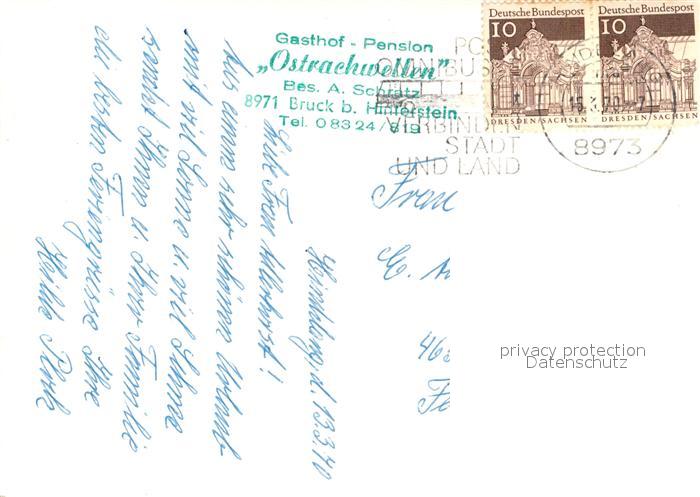 Gasthof - Pension
„Ostrachwellen"
Bes. A. Schratz
8971 Bruck b. Hinterstein
Tel. 0 83 24 / 819
Deutsche Bundespost
10
DRESDEN/SACHSEN
Deutsche Bundespost
10
DRESDEN/SACHSEN
OMNIBUS
VERBINDEN
STADT
UND LAND
8973
d. 13.3.70
Liebe Frau
Aus einem sehr schönen Urlaub
mit viel Sonne u. viel Schnee
sendet Ihnen u. Ihrer Familie
die besten Feriengrüsse Ihre
Frau
privacy protection
Datenschutz